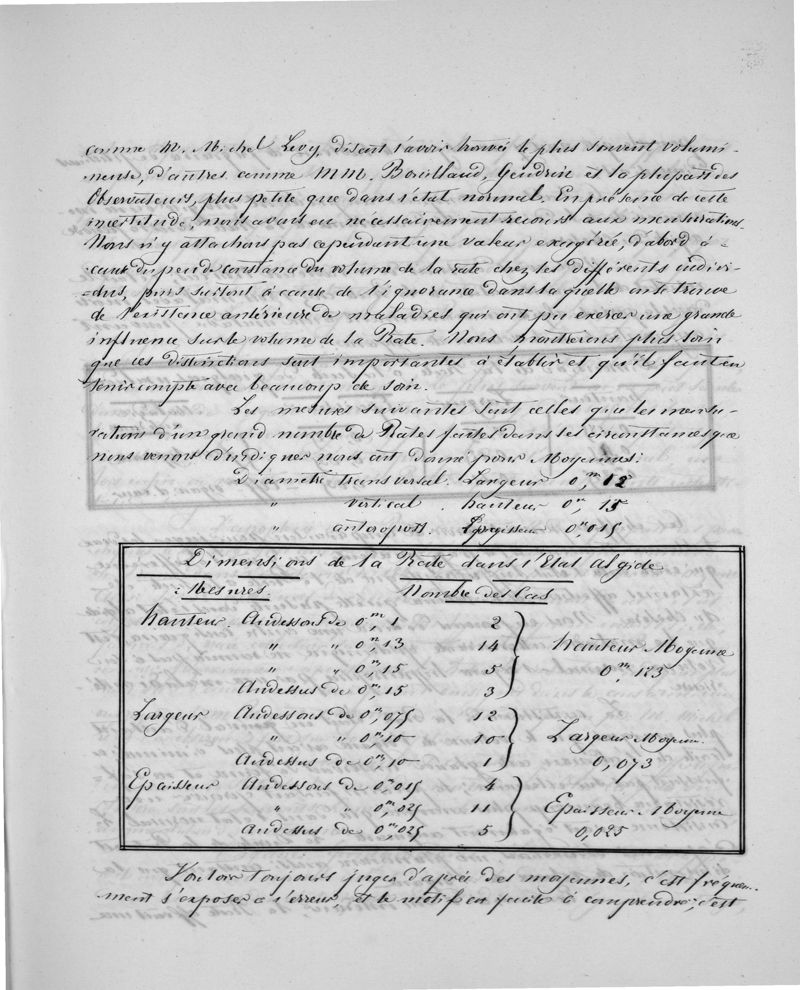 comme M. Michel Levy, disent l'avoir trouvée le plus souvent volumi-
neuse, d'autres comme MM. Bouillaud, Gendrin et la plupart des
Observateurs, plus petite que dans l'état normal. En présence de cette
incertitude, nous avons eu nécessairement recours aux mensurations.
Nous n'y attachons pas cependant une valeur exagérée, d'abord à
cause du peu de constance du volume de la rate chez les différents indivi-
-dus, puis surtout à cause de l'ignorance dans laquelle on se trouve
de l'existence antérieure de maladies qui ont pu exercer une grande
influence sur le volume de la Rate. Nous montrerons plus loin
que ces distinctions sont importantes à établir et qu'il faut en
tenir compte avec beaucoup de soin.
Les mesures suivantes sont celles que les mensu-
rations d'un grand nombre de Rates faites dans les circonstances que
nous venons d'indiquer nous ont donné pour Moyennes:
Diamètre transversal. Largeur 0,m 12
" vertical. hauteur 0m, 15
" antéropost. Epaisseur 0m,015
Dimensions de la Rate dans l'Etat Algide
Mesures Nombre des Cas
hauteur. Au dessous de 0,m 1 2
" " 0,m 13 14 hauteur Moyenne
" " 0,m 15 5 0,m 123
Au dessus de 0,m 15 3
Largeur Au dessous de 0m,075 12
" " 0m,10 10 Largeur Moyenne.
Au dessus de 0m,10 1 0,073
Epaisseur Au dessous de 0m,015 4
" " 0m,025 11 Epaisseur Moyenne
Au dessus de 0m,025 5 0,025
Vouloir toujours juger d'après des moyennes, c'est fréquem-
ment s'exposer à l'erreur, et le motif en facile à comprendre; c'est